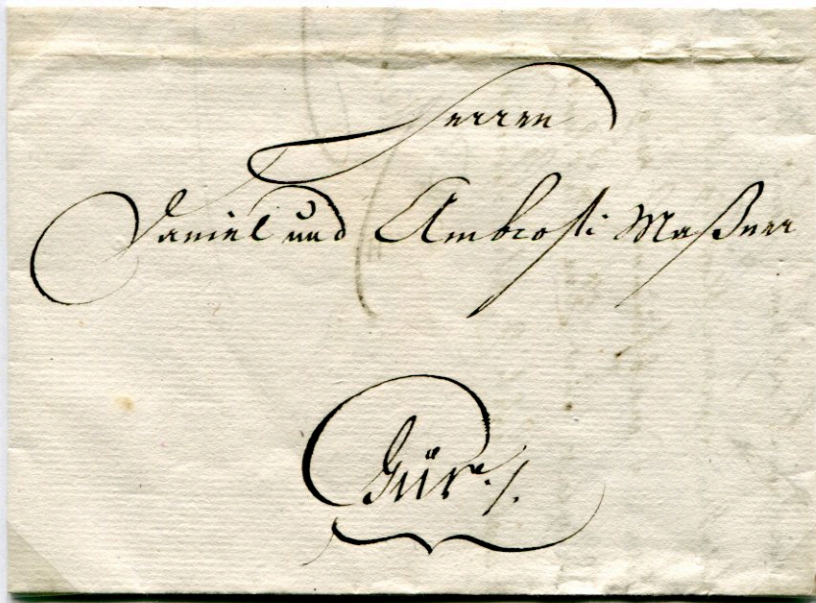 Herren
Daniel und Ambrosi Maßner
Cur ./.